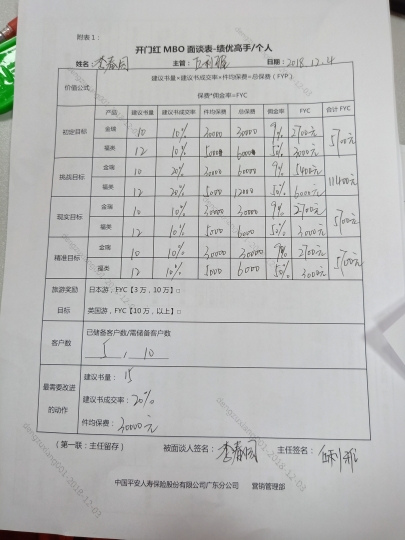 附表1:
开门红 MBO 面谈表-绩优高手/个人
姓名: 主管: 日期: 2018.12.4
价值公式
建议书量×建议书成交率×件均保费=总保费(FYP)
保费*佣金率=FYC
产品 建议书量 建议书成交率 件均保费 总保费 佣金率 FYC 合计FYC
初定目标
金瑞 10 10% 30000 30000 9% 2700元
5700元
福类 12 10% 5000 6000 50% 3000元
挑战目标
金瑞 10 20% 30000 60000 9% 5400元
11400元
福类 12 20% 5000 12000 50% 6000元
现实目标
金瑞 10 10% 30000 30000 9% 2700元
5700元
福类 12 10% 5000 6000 50% 3000元
精准目标
金瑞 10 10% 30000 30000 9% 2700元
5700元
福类 12 10% 5000 6000 50% 3000元
旅游奖励
目标
日本游,FYC【3万,10万】□
美国游,FYC【10万,以上】□
客户数
已储备客户数/需储备客户数
5 , 10
最需要改进
的动作
建议书量: 15
建议书成交率: 20%
件均保费: 30000元
(第一联:主任留存) 被面谈人签名: 主任签名:
中国平安人寿保险股份有限公司广东分公司 营销管理部